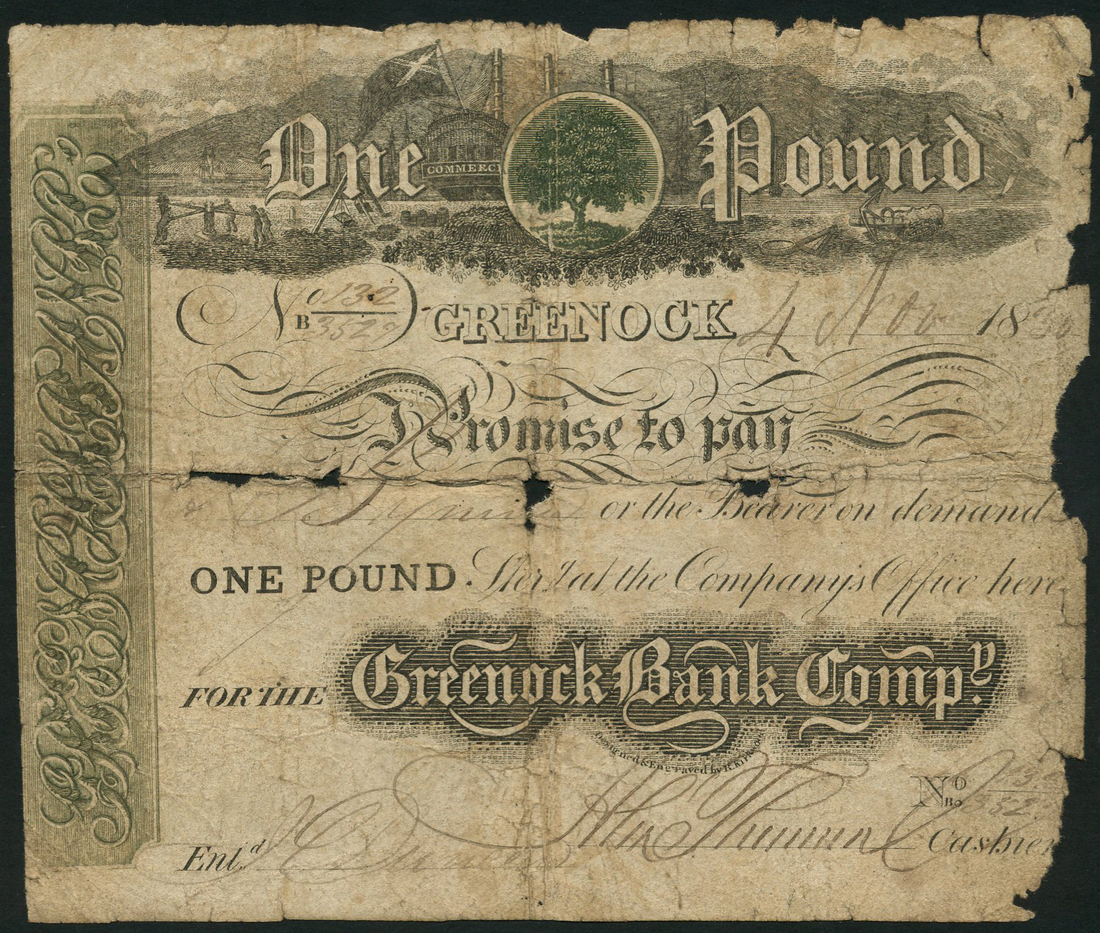 One Pound
COMMERCE
No 0132
B 3529
GREENOCK 4 Nov 1830
Promise to pay
or the Bearer on demand
ONE POUND Sterl.g at the Company's Office here
FOR THE Greenock Bank Comp.y
Designed & Engraved by R. Kirkwood
No
Bo
Alexr Thomson Cashier
Ent.d